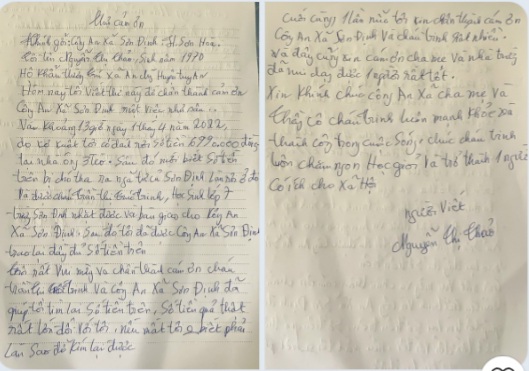 Thư cám ơn
Kính gởi: Công An Xã Sơn Định. H. Sơn Hòa.
Tôi tên Nguyễn Thị Thảo, Sinh năm 1970
Hộ Khẩu thường trú Xã An
Hôm nay tôi Viết thư này để chân thành cám ơn
Công An Xã Sơn Định một việc như sau:
Vào khoảng 13 giờ ngày 1 tháng 4 năm 2022,
do sơ xuất tôi có đánh rơi số tiền 6.990.000 đồng
tại nhà ông Sau đó mới biết Số tiền
trên bị
Và được cháu Trần thị trinh, Học Sinh lớp 7
trường Sơn Định nhặt được và bàn giao cho Công An
Xã Sơn Định. Sau đó tôi đã được Công An Xã Sơn Định
trao lại đầy đủ Số tiền trên
Tôi rất Vui mừng và chân thành cám ơn cháu
trần thị trinh Và Công An Xã Sơn Định đã
giúp tôi tìm lại Số tiền trên, Số tiền quá thật
rất lớn đối với tôi, nếu mất tôi k biết phải
làm Sao để kiếm lại được
Cuối cùng 1 lần nữa tôi xin chân thành cám ơn
Công An Xã Sơn Định Và cháu trinh rất nhiều.
Và đây cũng xin cám ơn cha mẹ Và nhà trường
đã nuôi dạy được 1 người rất tốt.
Xin Kính chúc công An Xã cha mẹ và
thầy Cô cháu trinh luôn mạnh khỏe và
thành công trong cuộc Sống, chúc cháu trinh
luôn chăm ngoan Học giỏi Và trở thành 1 người
có ích cho Xã Hội
người Viết
Nguyễn Thị Thảo